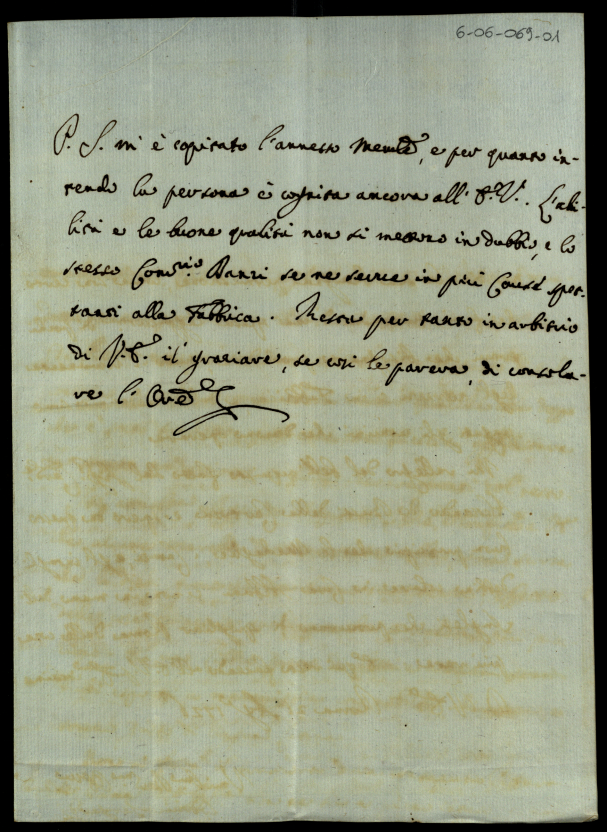 6-06-069-01
P. S. mi è capitato l'annesso Memle, e per quanto in-
tendo la persona è cognita ancora all' E. V. L'abi-
lità e le buone qualità non si mettono in dubbio, e lo
stesso Comrio Banzi se ne serve in più Cause spet-
tanti alla Fabbrica. Resta per tanto in arbitrio
di V. E. il graziare, se così le parerà, di consola-
re l' Ore